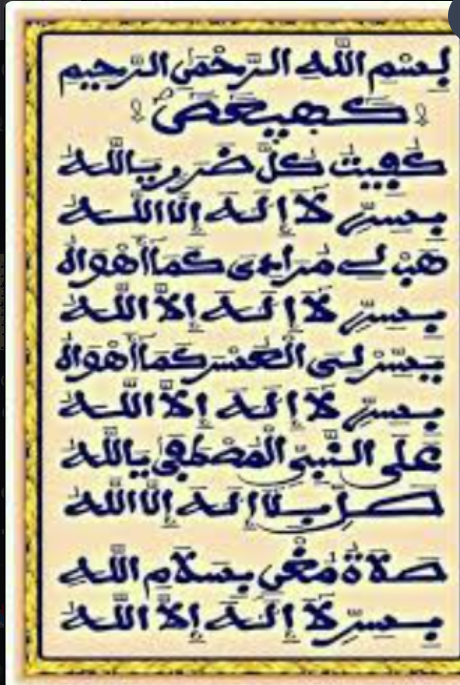 بسم الله الرحمن الرحيم
كهيعص
كفيت كل ضرر يا الله
بسر لا إله إلا الله
هب لي مرادي كما أهواه
بسر لا إله إلا الله
يسر لي العسر كما أهواه
بسر لا إله إلا الله
على النبي المصطفى يا الله
صل بلا إله إلا الله
صلاة مغن بسلام الله
بسر لا إله إلا الله